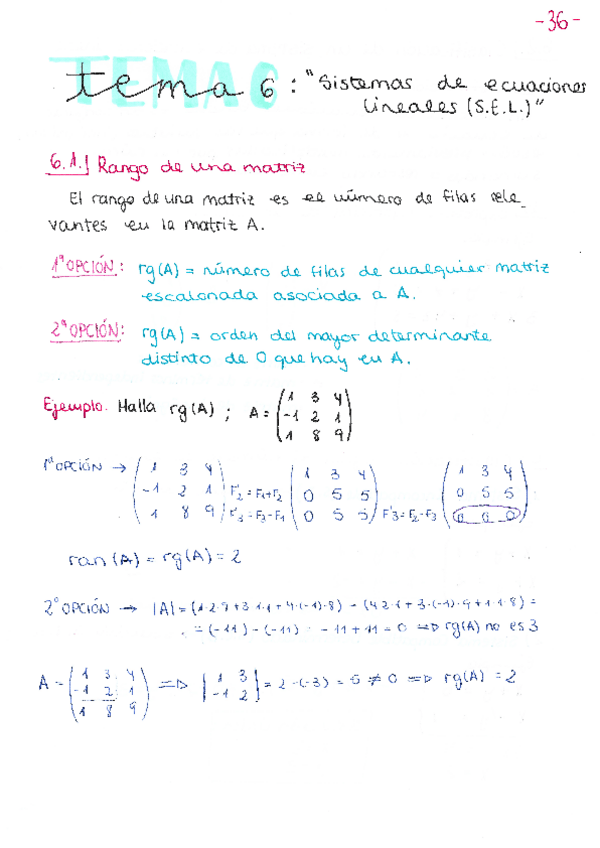 -36-
TEMA 6
tema 6: "Sistemas de ecuaciones
lineales (S.E.L.)"
6.1.| Rango de una matriz
El rango de una matriz es el número de filas rele_
vantes en la matriz A.
1ª OPCIÓN: rg(A) = número de filas de cualquier matriz
escalonada asociada a A.
2ª OPCIÓN: rg(A) = orden del mayor determinante
distinto de 0 que hay en A.
Ejemplo. Halla rg(A) ; A = (1 3 4
-1 2 1
1 8 9)
1ª OPCIÓN → (1 3 4
-1 2 1
1 8 9) F'2 = F1+F2 F'3 = F3-F1 (1 3 4
0 5 5
0 5 5) F'3 = F2-F3 (1 3 4
0 5 5
0 0 0)
ran(A) = rg(A) = 2
2ª OPCIÓN → |A| = (1·2·9+3·1·1+4·(-1)·8) - (4·2·1+3·(-1)·9+1·1·8) =
= (-11) - (-11) = -11+11 = 0 ⇒ rg(A) no es 3
A = (1 3 4
-1 2 1
1 8 9) ⇒ |1 3
-1 2| = 2-(-3) = 5 ≠ 0 ⇒ rg(A) = 2